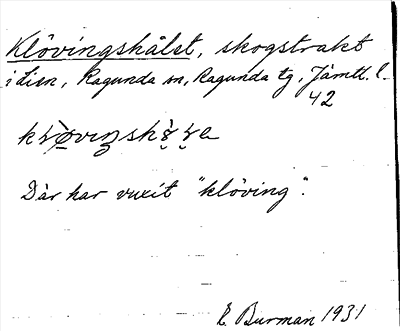 Klövingshålet, skogstrakt
i dien, Ragunda sn, Ragunda tg, Jämtl. l.
42
Där har vuxit "klöving".
E. Burman 1931